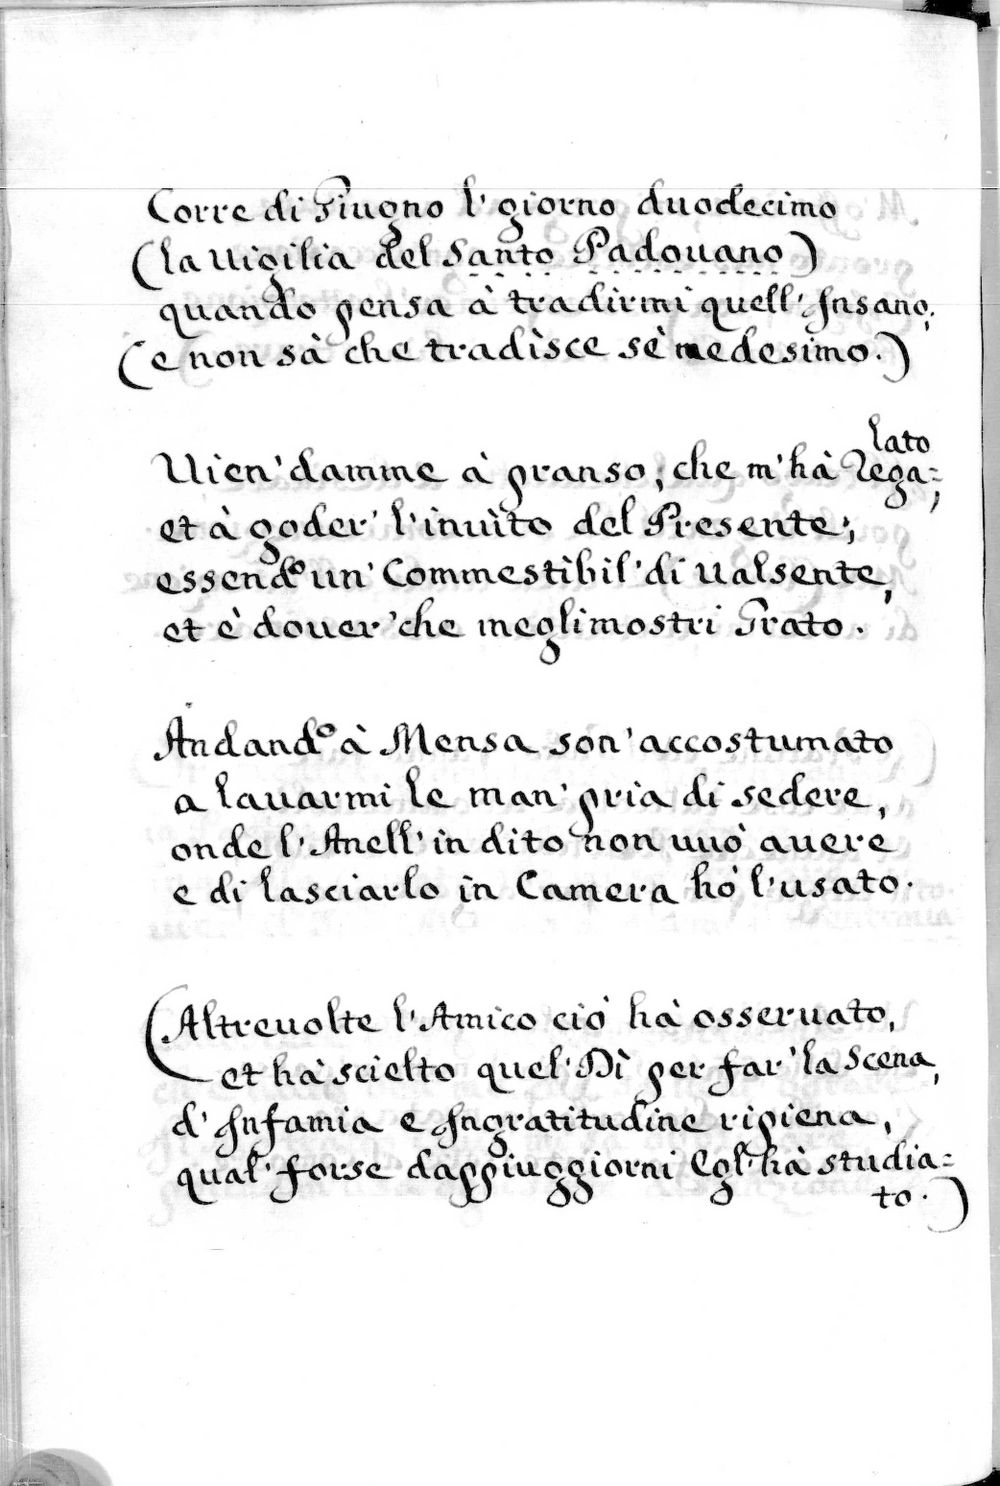 Corre di Giugno l' giorno duodecimo
(la Uigilia del Santo Padouano)
quando pensa à tradirmi quell' Insano,
(e non sà che tradìsce sè medesimo.)
Uien' damme à pranso; che m'hà Rega=
lato,
et à goder' l'inuìto del Presente;
essend.º un' Commestìbil' di ualsente,
et è douer' che meglimostri Grato.
Andand.º à Mensa son' accostumato
a lauarmi le man' pria di sedere,
onde l'Anell' in dito non uuò auere
e di lasciarlo in Camera hò l'usato.
(Altreuolte l'Amico ciò hà osseruato,
et hà scielto quel' Dì per far' la Scena,
d'Infamia e Ingratitudine ripiena,
qual' forse dappiuggiorni Egl' hà studia=
to.)